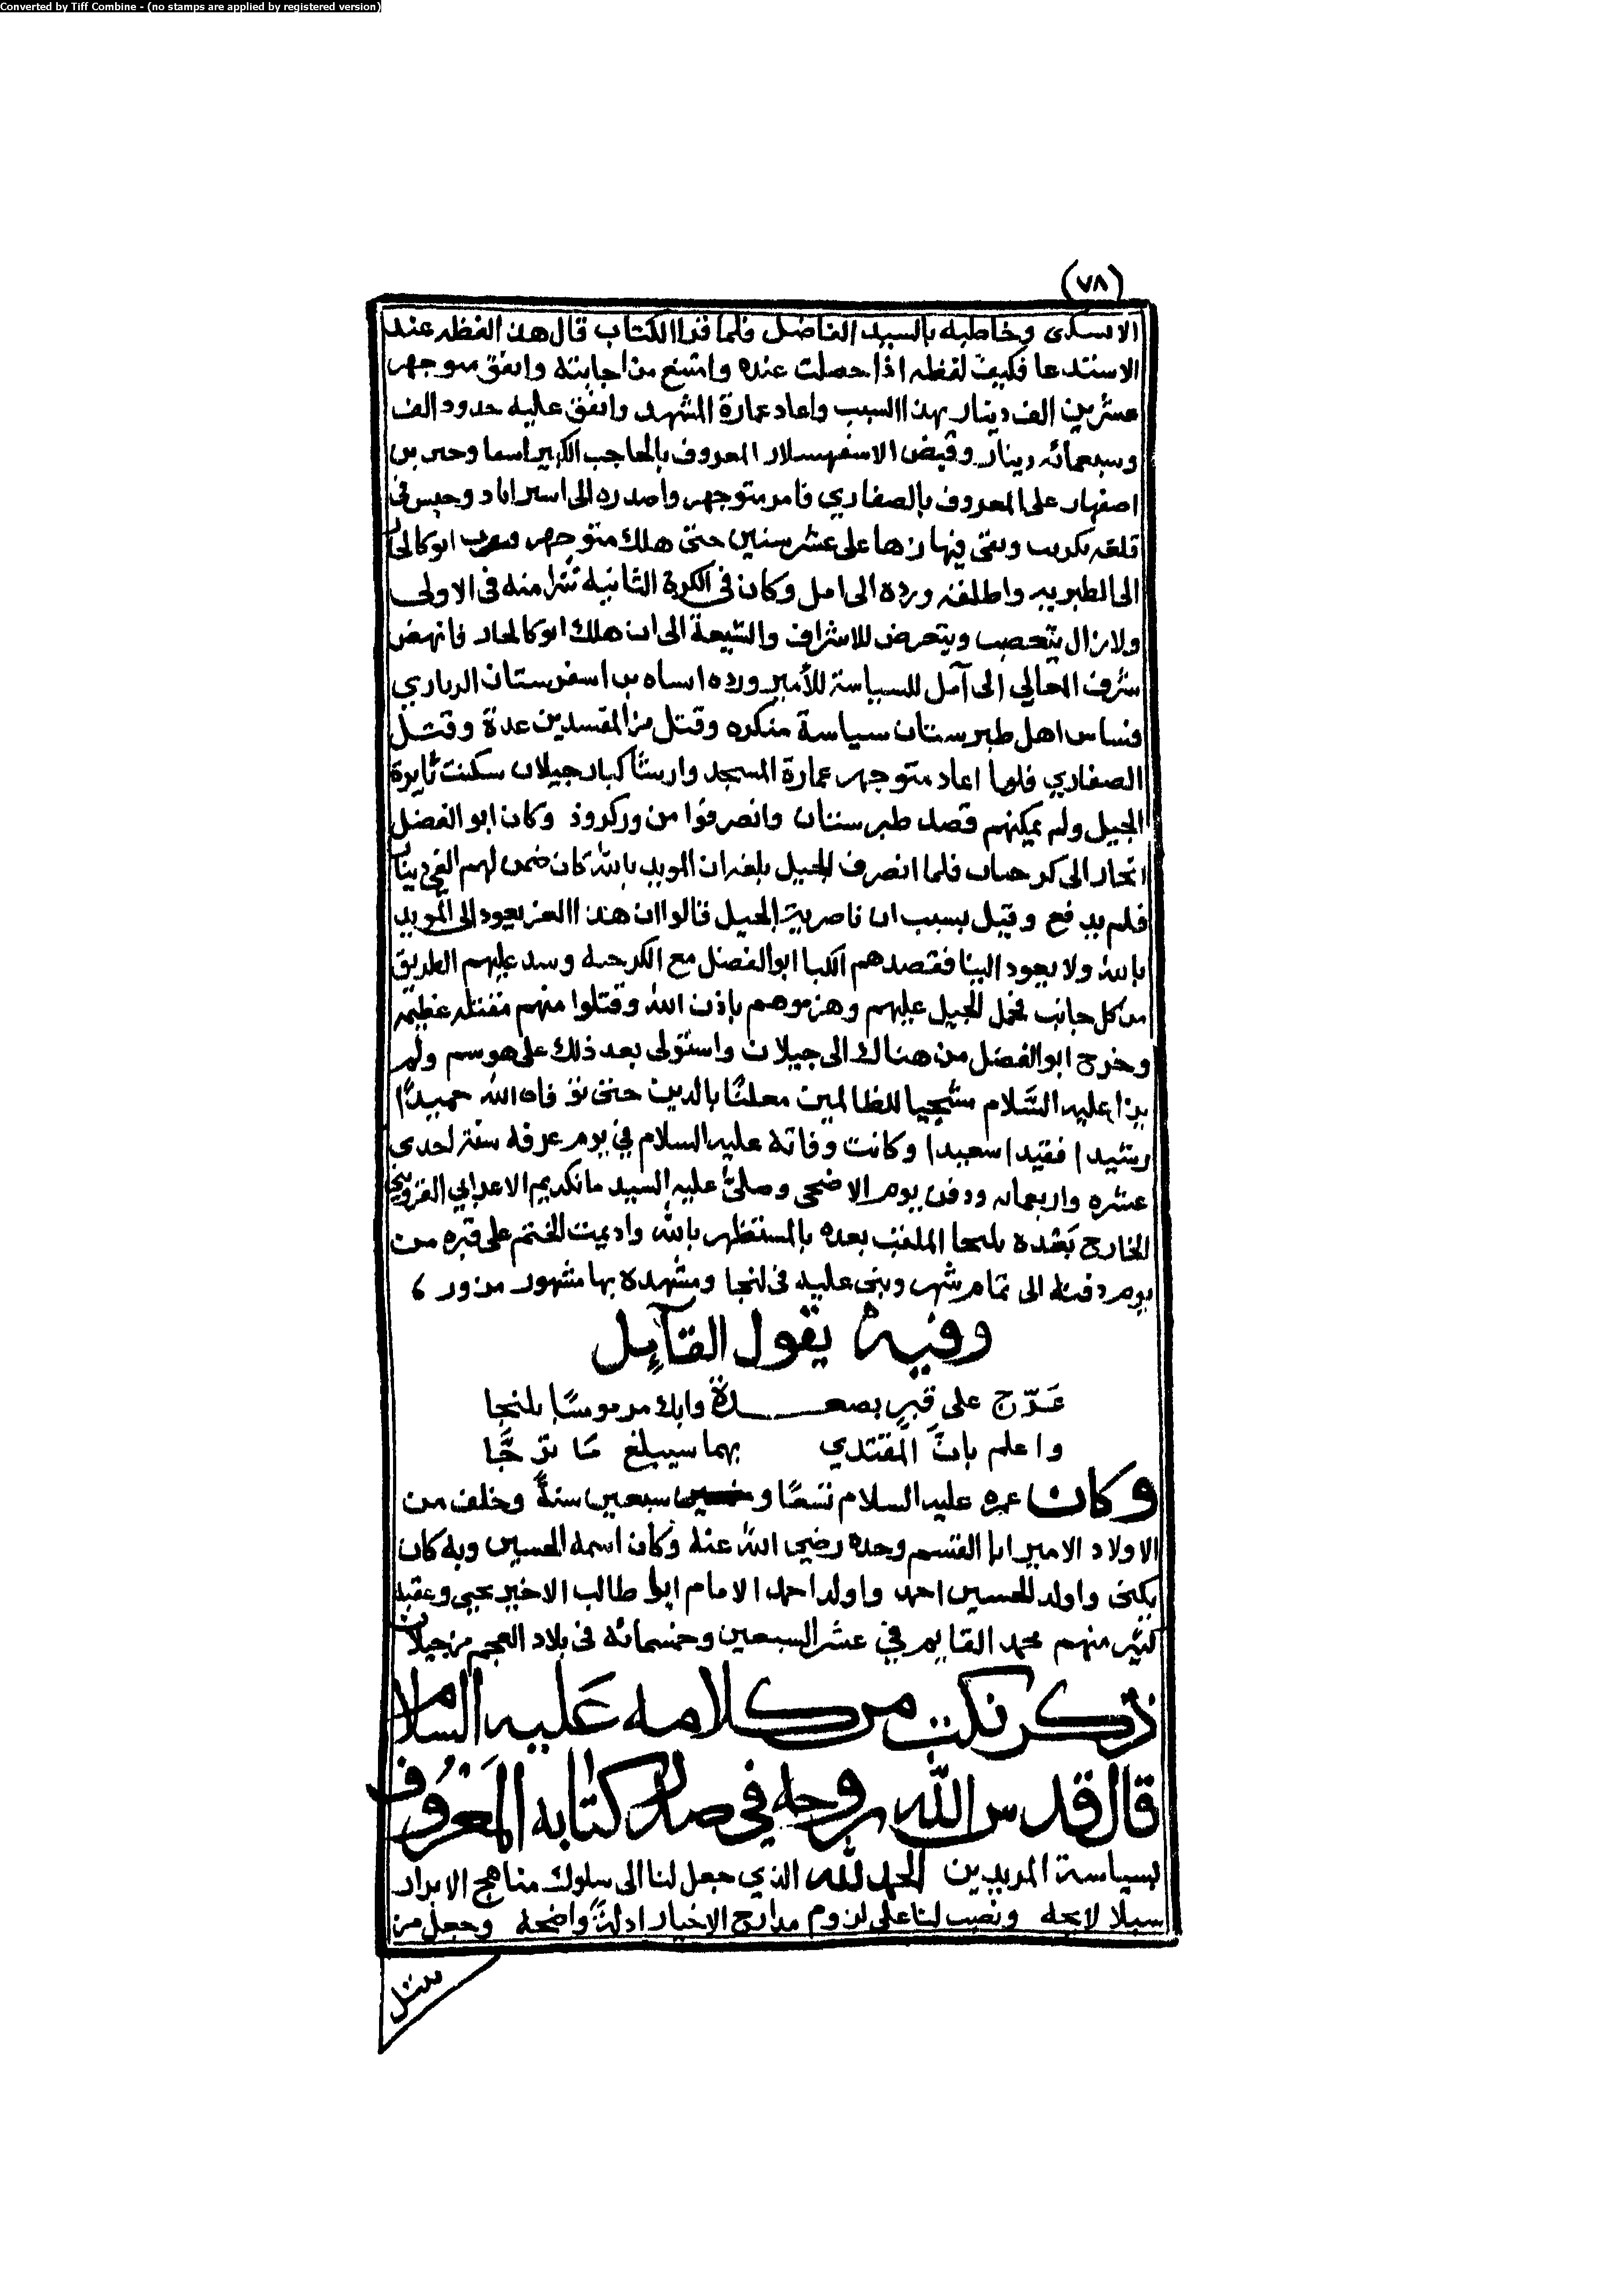 Converted by Tiff Combine - (no stamps are applied by registered version)
(٧٨)
الاسكرى وخاطبه بالسيد الفاضل فلما قرا الكتاب قال هذه الفظه عند
الاستدعا فكيف لفظه اذا حصلت عنده وامتنع من اجابته وانفق منوجهر
عشرين الف دينار بهذا السبب واعاد عمارة المشهد وانفق عليه حدود الف
وسبعمائه دينار وقبض الاسفهسلار المعروف بالحاجب الكبير اسما وحرب بن
اصفهار على المعروف بالصفاري فامر متوجهر واصدره الى استراباد وحبس في
قلعه بكريب وبقى فيها زها على عشر سنين حتى هلك متوجهر وهرب ابو كاليجار
الى الطبريه واطلقه ورده الى امل وكان في الكرة الثانيه شرا منه في الاولى
ولا يزال يتعصب ويتعرض للاشراف والشيعة الى ان هلك ابو كاليجار فانهض
شرف المعالي الى آمل للسياسة للأمير ورده اساه بن اسفرستان الرباري
فساس اهل طبرستان سياسة منكره وقتل من المفسدين عدة وقتل
الصفاري فلما اعاد متوجهر عمارة المسجد وارسا كبار جيلان سكنت ثايرة
الجيل ولم يمكنهم قصد طبرستان وانصرفوا من وركروذ وكان ابو الفضل
انحاز الى كرحسان فلما انصرف الجيل بلغه ان المويد بالله كان ضمن لهم الفي دينار
فلم يدفع وقيل بسبب ان ناصرية الجيل قالوا ان هذا العز يعود الى المويد
بالله ولا يعود الينا فقصدهم الكيا ابو الفضل مع الكرحيه وسد عليهم الطريق
من كل جانب فحمل الجيل عليهم وهزموهم باذن الله وقتلوا منهم مقتله عظيمه
وخرج ابو الفضل من هنالك الى جيلان واستولى بعد ذلك على هوسم ولم
يزل عليه السَّلام شجيا للظالمين معلنًا بالدين حتى توفاه الله حميدًا
رشيدا فقيدا سعيدا وكانت وفاته عليه السلام في يوم عرفه سنة احدى
عشره واربعمائه ودفن يوم الاضحى وصلى عليه السيد مانكديم الاعرابي القزويني
الخارج بَعْده بلنجا الملقب بعده بالمستظهر بالله واديمت الختم على قبره من
يوم دفنه الى تمام شهر وبنى عليه في لنجا ومشهده بها مشهور مزور ،
وفيه يقول القآئِل
عَرّج على قبرٍ بصعــدة وابك مرموسًا بلنجا
واعلم بانَّ المقتدي بهما سيبلغ مَا ترجَّا
وكان عمره عليه السلام تسعًا و سبعين سنةً وخلف من
الاولاد الامير ابا القسم وحده رضي الله عنه وكان اسمه الحسين وبه كان
يكنى واولد للحسين احمد واولد احمد الامام ابو طالب الاخير يحيى وعقبه
كثير منهم محمد القايم في عشر السبعين وخمسمائه في بلاد العجم من جيلان
ذكر نكت من كلامه عَليه السَّلام
قال قدس الله روحه في صدر كتابه المَعْرُوف
بسياسة المريدين الحمد لله الذي جعل لنا الى سلوك مناهج الابرار
سبلا لايحه ونصب لنا على لزوم مدارج الاخيار ادلةً واضحه وجعل من
سبل